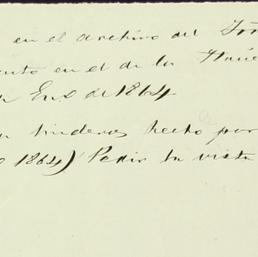 en el archivo del
en el de la
Eno de 1864
linderos hecho por
1864) Pedir la vista